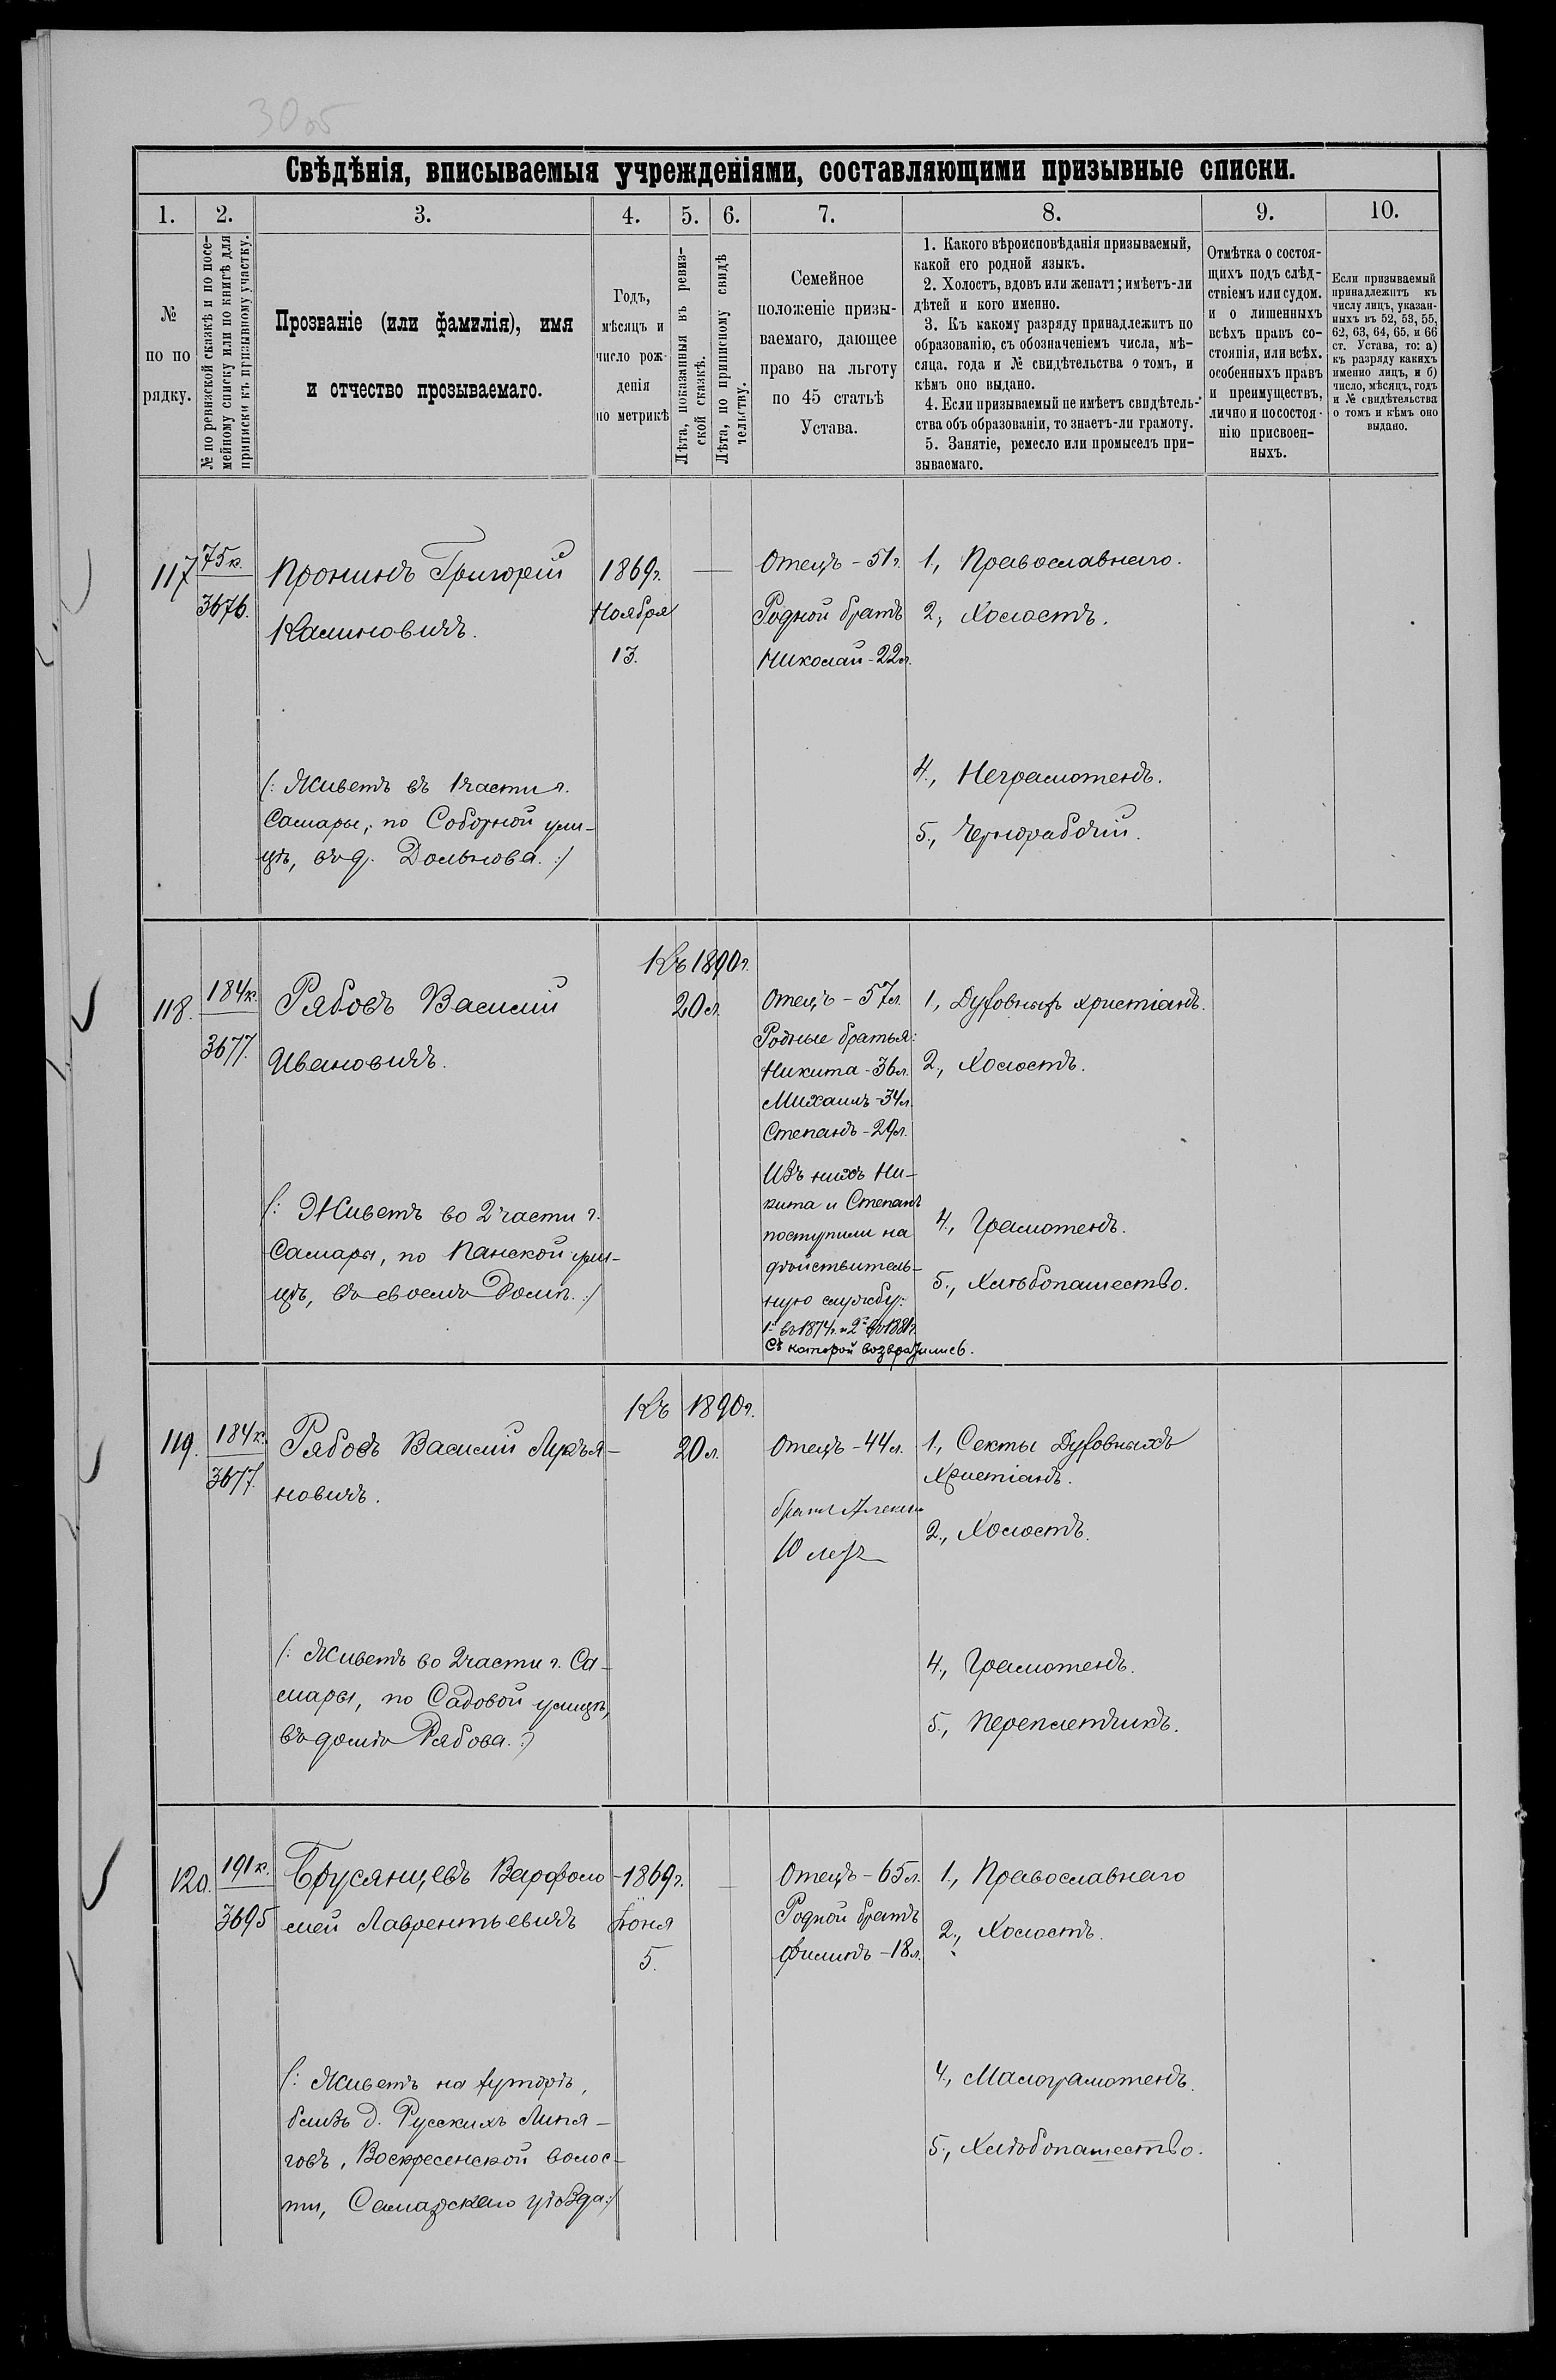 30об
Свѣдѣнія, вписываемыя учрежденіями, составляющими призывные списки.
1. 2. 3. 4. 5. 6. 7. 8. 9. 10.
№
по по
рядку.
№ по ревизской сказкѣ и по посе-
мейному списку или по книгѣ для
приписки къ призывному участку.
Прозваніе (или фамилія), имя
и отчество прозываемаго.
Годъ,
мѣсяцъ и
число рож-
денія
по метрикѣ
Лѣта, показанныя въ ревиз-
ской сказкѣ.
Лѣта, по приписному свидѣ
тельству.
Семейное
положеніе призы-
ваемаго, дающее
право на льготу
по 45 статьѣ
Устава.
1. Какого вѣроисповѣданія призываемый,
какой его родной языкъ.
2. Холостъ, вдовъ или женатъ; имѣетъ-ли
дѣтей и кого именно.
3. Къ какому разряду принадлежитъ по
образованію, съ обозначеніемъ числа, мѣ-
сяца, года и № свидѣтельства о томъ, и
кѣмъ оно выдано.
4. Если призываемый не имѣетъ свидѣтель-
ства объ образованіи, то знаетъ-ли грамоту.
5. Занятіе, ремесло или промыселъ при-
зываемаго.
Отмѣтка о состоя-
щихъ подъ слѣд-
ствіемъ или судом.
и о лишенныхъ
всѣхъ правъ со-
стоянія, или всѣх.
особенныхъ правъ
и преимуществъ,
лично и по состоя-
нію присвоен-
ныхъ.
Если призываемый
принадлежитъ къ
числу лицъ, указан-
ныхъ въ 52, 53, 55,
62, 63, 64, 65, и 66
ст. Устава, то: а)
къ разряду какихъ
именно лицъ, и б)
число, мѣсяцъ, годъ
и № свидѣтельства
о томъ и кѣмъ оно
выдано.
117
75к.
3676.
Пронинъ Григорій
Калиновичъ.
(: Живетъ въ 1 части г.
Самары, по Соборной ули-
цѣ, въ д. Дольнова. :)
1869г.
Ноября
13.
Отецъ - 51г.
Родной братъ
Николай - 22л.
1, Православнаго.
2, Холостъ.
4., Неграмотенъ.
5., Чернорабочій.
118.
184к.
3677.
Рябовъ Василій
Ивановичъ.
(: Живетъ во 2 части г.
Самары, по Панской ули-
цѣ, въ своемъ домѣ. :)
Къ 1890г.
20л.
Отецъ - 57л.
Родные братья:
Никита - 36л.
Михаилъ - 34л.
Степанъ - 29л.
Изъ нихъ Ни-
кита и Степанъ
поступили на
дѣйствитель-
ную службу:
1й въ 1874г. и 2й въ 1881г.
Съ которой возвратились.
1, Духовныхъ христіанъ.
2., Холостъ.
4., Грамотенъ.
5., Хлѣбопашество.
119.
184к.
3677.
Рябовъ Василій Лукья-
новичъ.
(: Живетъ во 2 части г. Са-
мары, по Садовой улицѣ,
въ домѣ Рябова. :)
Къ 1890г.
20л.
Отецъ - 44л.
братъ
10 летъ
1., Секты Духовныхъ
Христіанъ.
2., Холостъ.
4., Грамотенъ.
5., Переплетчикъ.
120.
191к.
3695
Брусянцевъ Варфоло-
мей Лаврентьевичъ
(: Живетъ на хуторѣ,
близь д. Русскихъ Липя-
говъ, Воскресенской волос-
ти, Самарскаго уѣзда :)
1869г.
Іюня
5.
Отецъ - 65л.
Родной братъ
Филипъ - 18л.
1., Православнаго
2., Холостъ.
4., Малограмотенъ.
5., Хлѣбопашество.